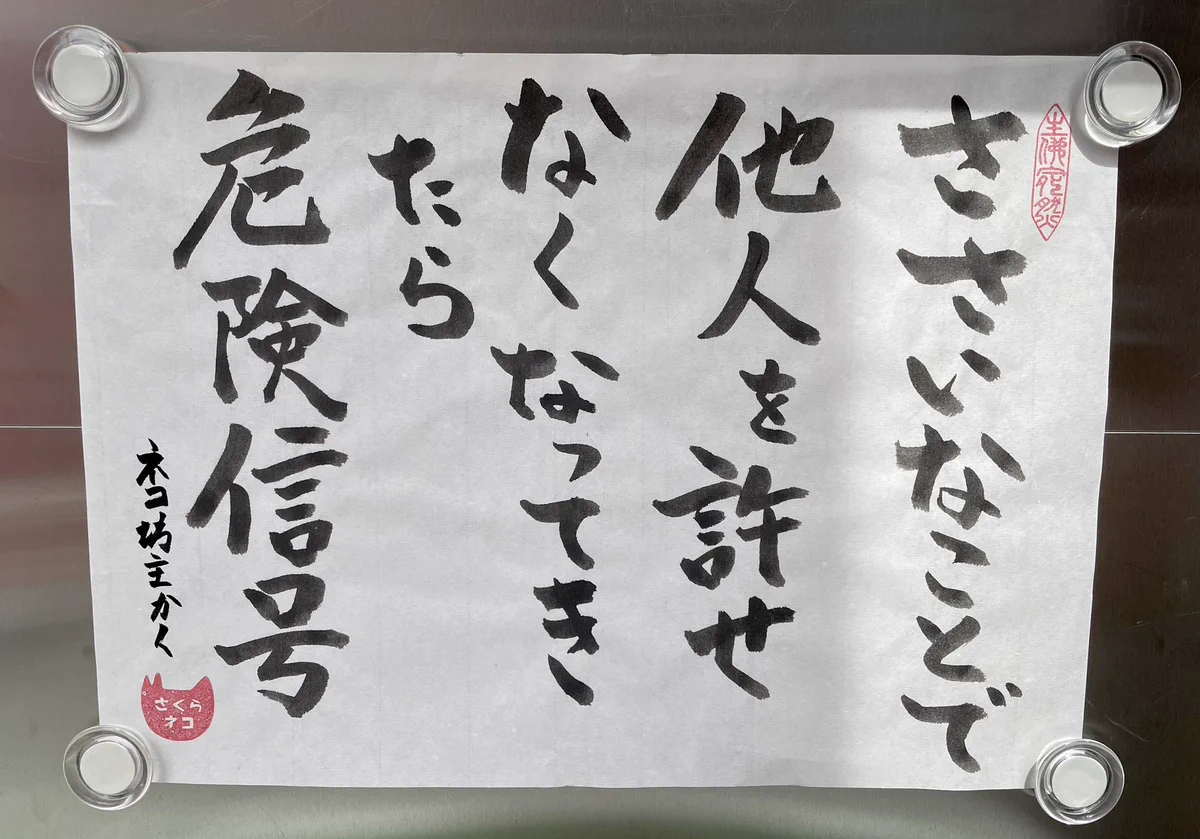 ささいなことで
他人を許せ
なくなってき
たら
危険信号
ネコ坊主かく
さくら
ネコ